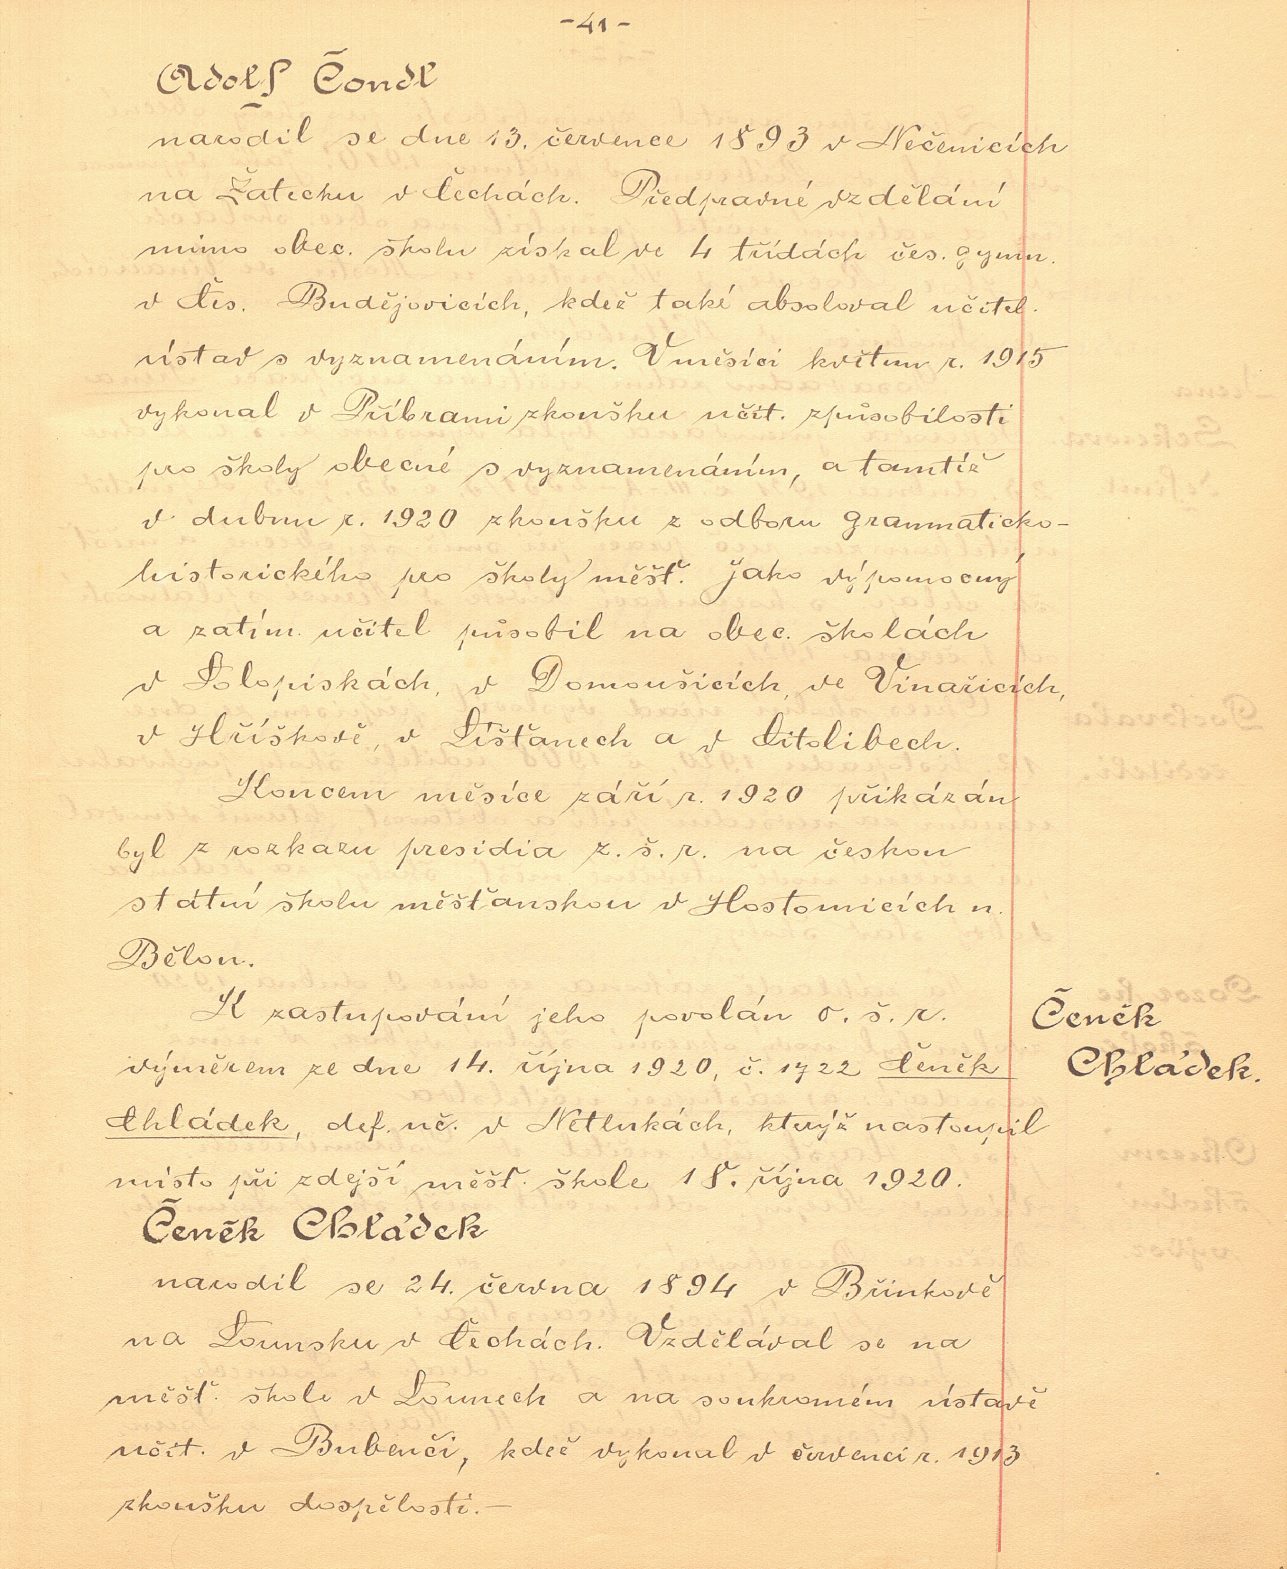 -41-
Adolf Čondl
narodil se dne 13. července 1893 v Nečenicích
na Žatecku v Čechách. Předpravné vzdělání
mimo obec. školu získal ve 4 třídách čes. gymn.
v Čes. Budějovicích, kdež také absoloval učitel.
ústav s vyznamenáním. V měsíci květnu r. 1915
vykonal v Příbrami zkoušku učit. způsobilosti
pro školy obecné s vyznamenáním, a tamtéž
v dubnu r. 1920 zkoušku z odboru grammaticko-
historického pro školy měšť. Jako výpomocný
a zatím. učitel působil na obec. školách
v Solopiskách, v Domoušicích, ve Vinařicích,
v Hříškově, v Líšťanech a v Citolibech.
Koncem měsíce září r. 1920 přikázán
byl z rozkazu presidia z. š. r. na českou
státní školu měšťanskou v Hostomicích n.
Bělou.
K zastupování jeho povolán o. š. r.
výměrem ze dne 14. října 1920, č. 1722 Čeněk
Chládek, def. uč. v Netlukách, kterýž nastoupil
místo při zdejší měšť. škole 18. října 1920.
Čeněk
Chládek.
Čeněk Chládek
narodil se 24. června 1894 v Břinkově
na Lounsku v Čechách. Vzdělával se na
měšť. škole v Lounech a na soukromém ústavě
učit. v Bubenči, kdež vykonal v červenci r. 1913
zkoušku dospělosti.—